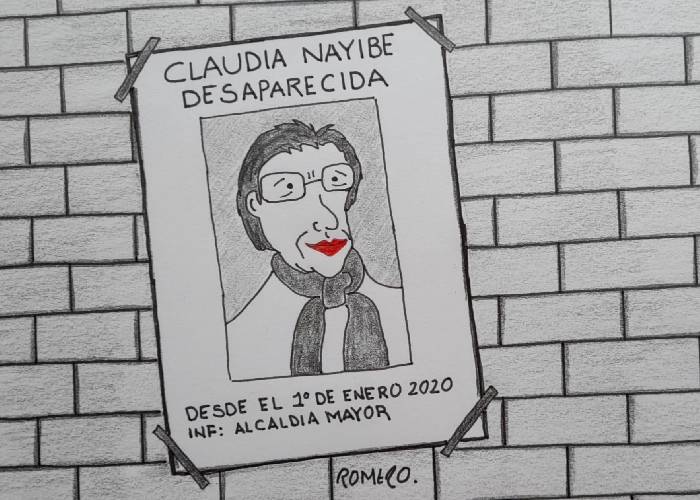 CLAUDIA NAYIBE
DESAPARECIDA
DESDE EL 1º DE ENERO 2020
INF: ALCALDIA MAYOR
ROMERO.